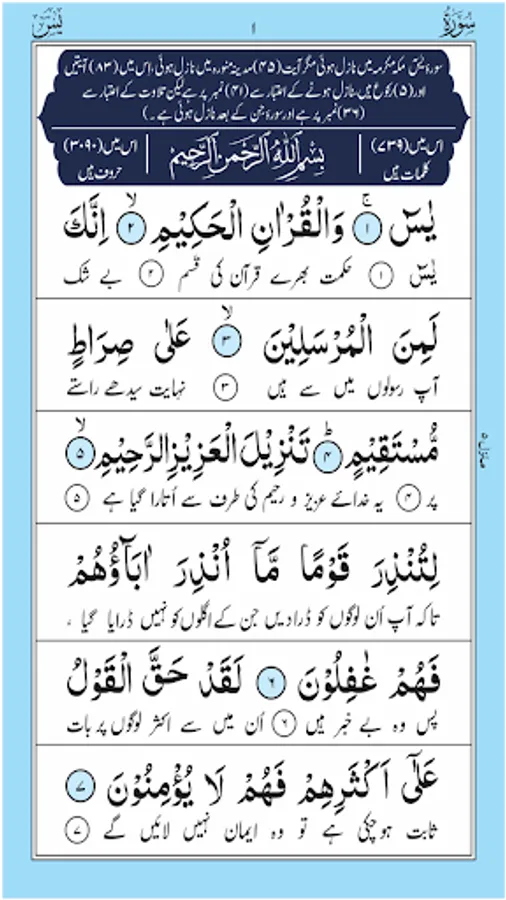 سُوْرَةُ ۱ يٰسٓ
سورۂ یٰسٓ مکہ مکرمہ میں نازل ہوئی مگر آیت (۴۵) مدینہ منورہ میں نازل ہوئی، اس میں (۸۳) آیتیں
اور (۵) رکوع ہیں، نازل ہونے کے اعتبار سے (۴۱) نمبر پر ہے لیکن تلاوت کے اعتبار سے
(۳۶) نمبر پر ہے اور سورۂ جن کے بعد نازل ہوئی ہے۔)
اس میں (۷۳۹) کلمات ہیں
بِسْمِ اللّٰهِ الرَّحْمٰنِ الرَّحِيْمِ
اس میں (۳۰۹۰) حروف ہیں
يٰسٓ ۚ ۱ وَالْقُرْاٰنِ الْحَكِيْمِ ۙ ۲ اِنَّكَ
یٰسٓ ۱ حکمت بھرے قرآن کی قسم ۲ بے شک
لَمِنَ الْمُرْسَلِيْنَ ۙ ۳ عَلٰى صِرَاطٍ
آپ رسولوں میں سے ہیں ۳ نہایت سیدھے راستے
مُّسْتَقِيْمٍ ؕ ۴ تَنْزِيْلَ الْعَزِيْزِ الرَّحِيْمِ ۙ ۵
پر ۴ یہ خدائے عزیز و رحیم کی طرف سے اُتارا گیا ہے ۵
لِتُنْذِرَ قَوْمًا مَّاۤ اُنْذِرَ اٰبَآؤُهُمْ
تاکہ آپ اُن لوگوں کو ڈرا دیں جن کے اگلوں کو نہیں ڈرایا گیا ،
فَهُمْ غٰفِلُوْنَ ۶ لَقَدْ حَقَّ الْقَوْلُ
پس وہ بے خبر ہیں ۶ اُن میں سے اکثر لوگوں پر بات
عَلٰۤى اَكْثَرِهِمْ فَهُمْ لَا يُؤْمِنُوْنَ ۷
ثابت ہوچکی ہے تو وہ ایمان نہیں لائیں گے ۷
منزل ۵